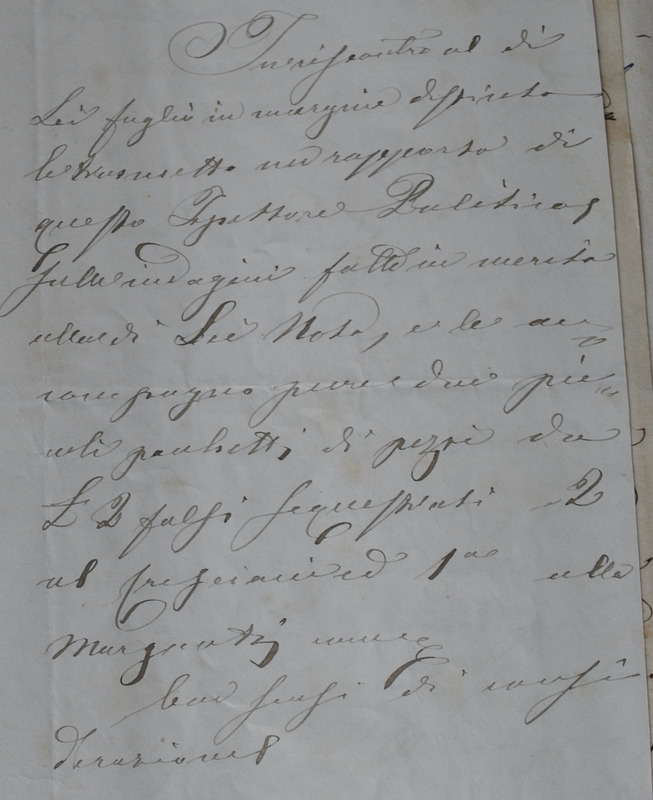 In riscontro al di
Lei foglio in margine distinto
le trasmetto un rapporto di
questo Ispettore Politico
sulle indagini fatte in merito
alla di Lei Nota, e le ac
compagno pure due pic
coli pachetti di pezzi da
L 2 falsi sequestrati 2
al ed 1 alla

Con sensi di consi
derazione